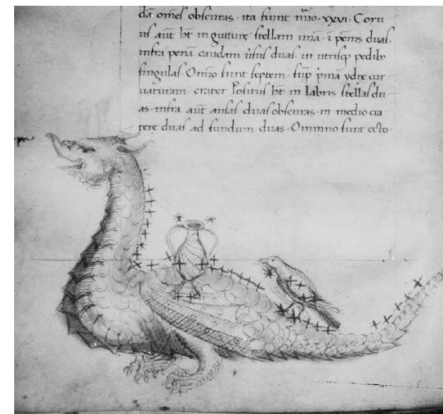 da omes obscuras · ita sunt nũo · xxvi · Coru
us aut ht in gutture stellam unã · i pẽnis duas ·
infra penã caudam usus duas · in utrisq; pedibꝰ
singulas · Omo sunt septem · sup pma ydre cur
uaturam crater positus ht in labris stellas du
as · infra aut ansas duas obscuras · in medio cra
tere duas ad fundum duas · Omnino sunt octo ·